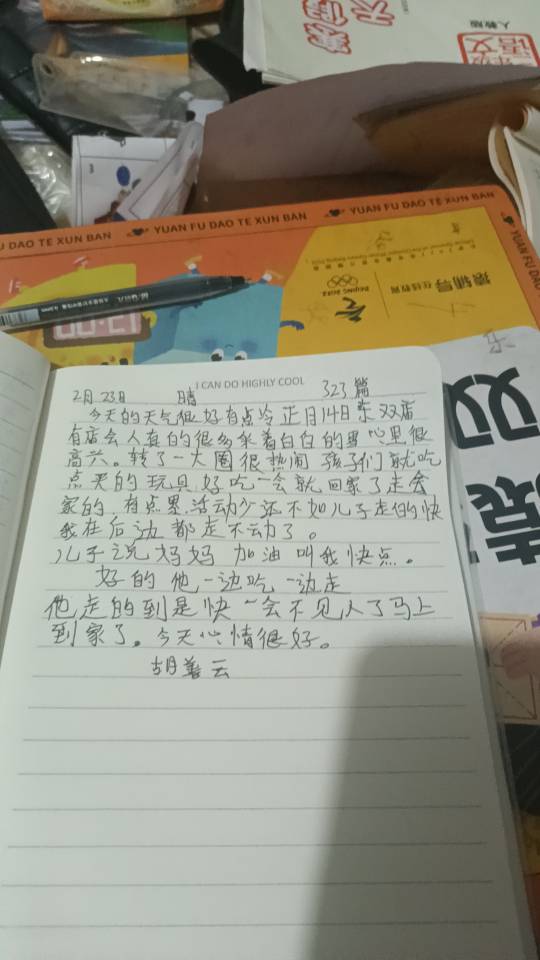 人教版
语文
YUAN FU DAO TE XUN BAN
YUAN FU DAO TE XUN BAN
YUAN FU DAO TE XUN BAN
YUAN FU DAO
猿辅导 在线教育
BEIJING 2022
双
I CAN DO HIGHLY COOL
2月 23日 晴 323篇
今天的天气很好有点冷正月14日东双店
有店会人真的很多采着白白的雪心里很
高兴。转了一大圈很热闹 孩子们就吃
点 买的玩具 好吃一会就回家了走会
家的,有点累,活动少还不如儿子走的快
我在后边都走不动了。
儿子说妈妈 加油 叫我快点。
好的他一边吃一边走
他走的到是快一会不见人了马上
到家了。今天心情很好。
胡善云